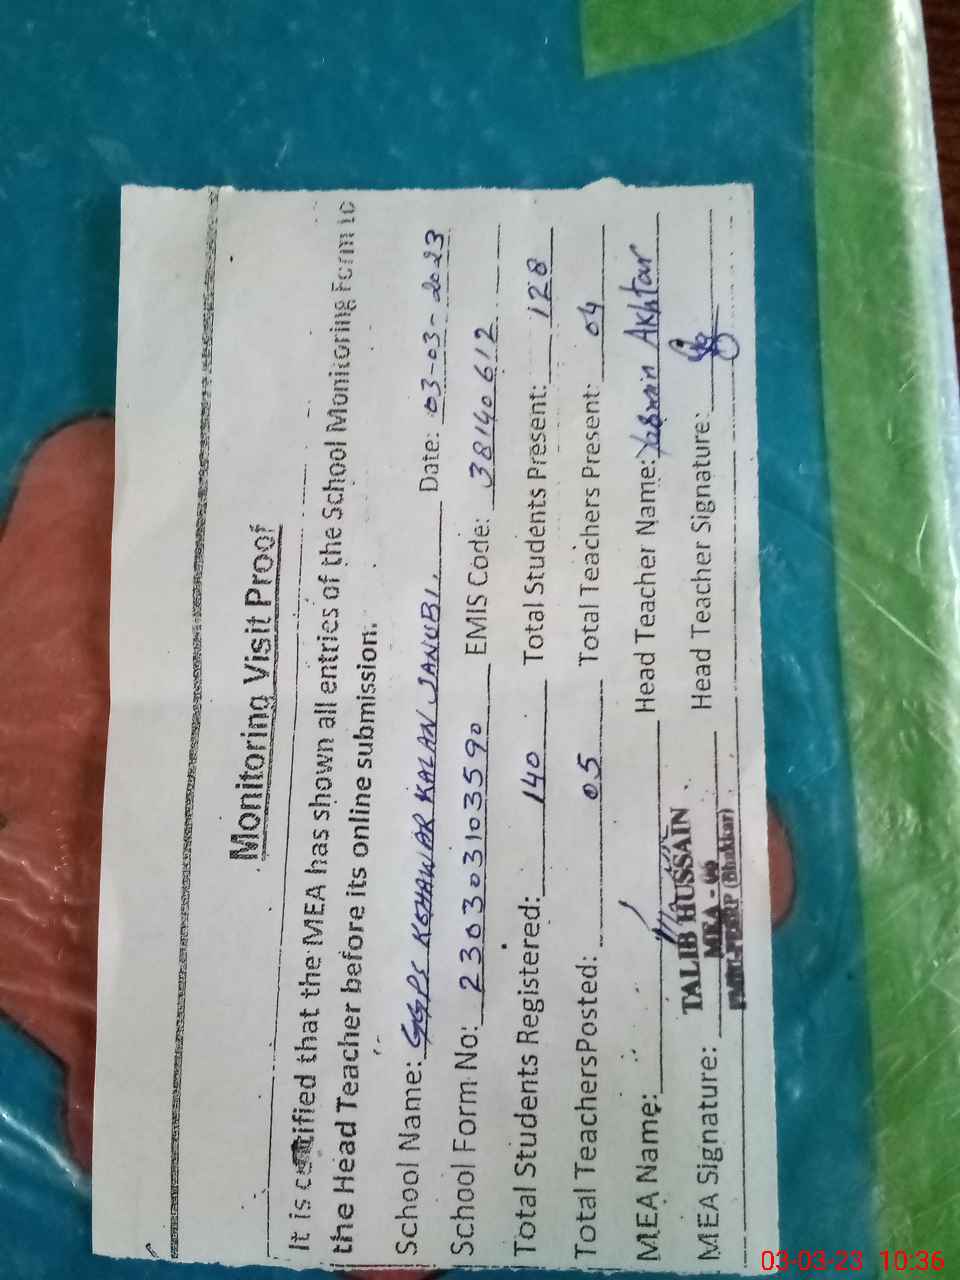 Monitoring Visit Proof
It is certified that the MEA has shown all entries of the School Monitoring Form to
the Head Teacher before its online submission.
School Name: GGPS KOHAWAR KALAN JANUBI. Date: 03-03-2023
School Form No: 230303103590 EMIS Code: 38140612
Total Students Registered: 140 Total Students Present: 128
Total TeachersPosted: 05 Total Teachers Present: 04
MEA Name: Head Teacher Name: Yasmin Akhtar
TALIB HUSSAIN
MEA Signature: MEA - Head Teacher Signature:
(Bhakkar)
03-03-23 10:36